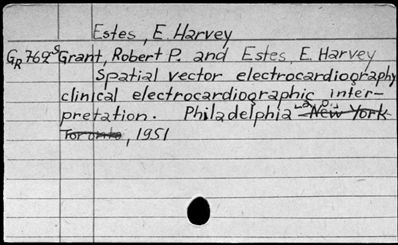 Estes, E. Harvey
GR762S Grant, Robert P. and Estes, E. Harvey
Spatial vector electrocardiography
clinical electrocardiographic inter-
pretation. Philadelphia New York
Toronto, 1951